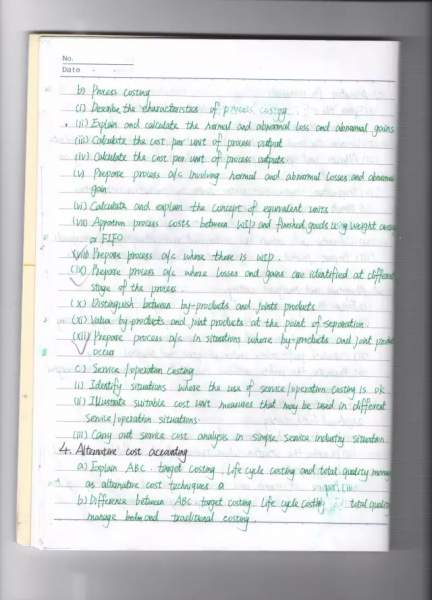 No.
Date
b) Process costing
(i) Describe the characteristics of process costing.
(ii) Explain and calculate the normal and abnormal loss and abnormal gains
(iii) Calculate the cost per unit of process output
(iv) Calculate the cost per unit of process outputs.
(v) Prepare process a/c involving normal and abnormal losses and abnormal
gain.
(vi) Calculate and explain the concept of equivalent units
(vii) Apportion process costs between WIP and finished goods using weight
or FIFO
(viii) Prepare process a/c where there is WIP.
(ix) Prepare process a/c where losses and gains can identified at different
stage of the process
(x) Distinguish between by-products and joints products
(xi) Value by-products and joint products at the point of separation.
(xii) Prepare process a/c in situations where by-products and joint
occur
c) Service/operation costing
(i) Identify situations where the use of service/operation costing is ok
(ii) Illustrate suitable cost unit measures that may be used in different
service/operation situations.
(iii) Carry out service cost analysis in simple service industry situation
4. Alternative cost accounting
a) Explain ABC. target costing. Life cycle costing and total quality
as alternative cost techniques
b) Difference between ABC. target costing. Life cycle costing total quality
and traditional costing.